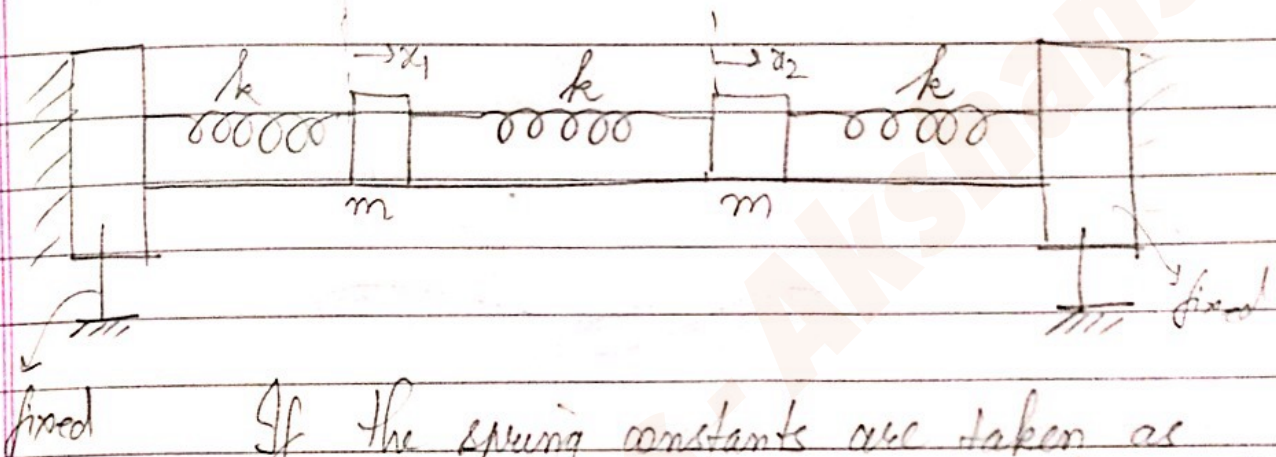 →x₁ →x₂
k k k
m m
fixed
fixed If the spring constants are taken as